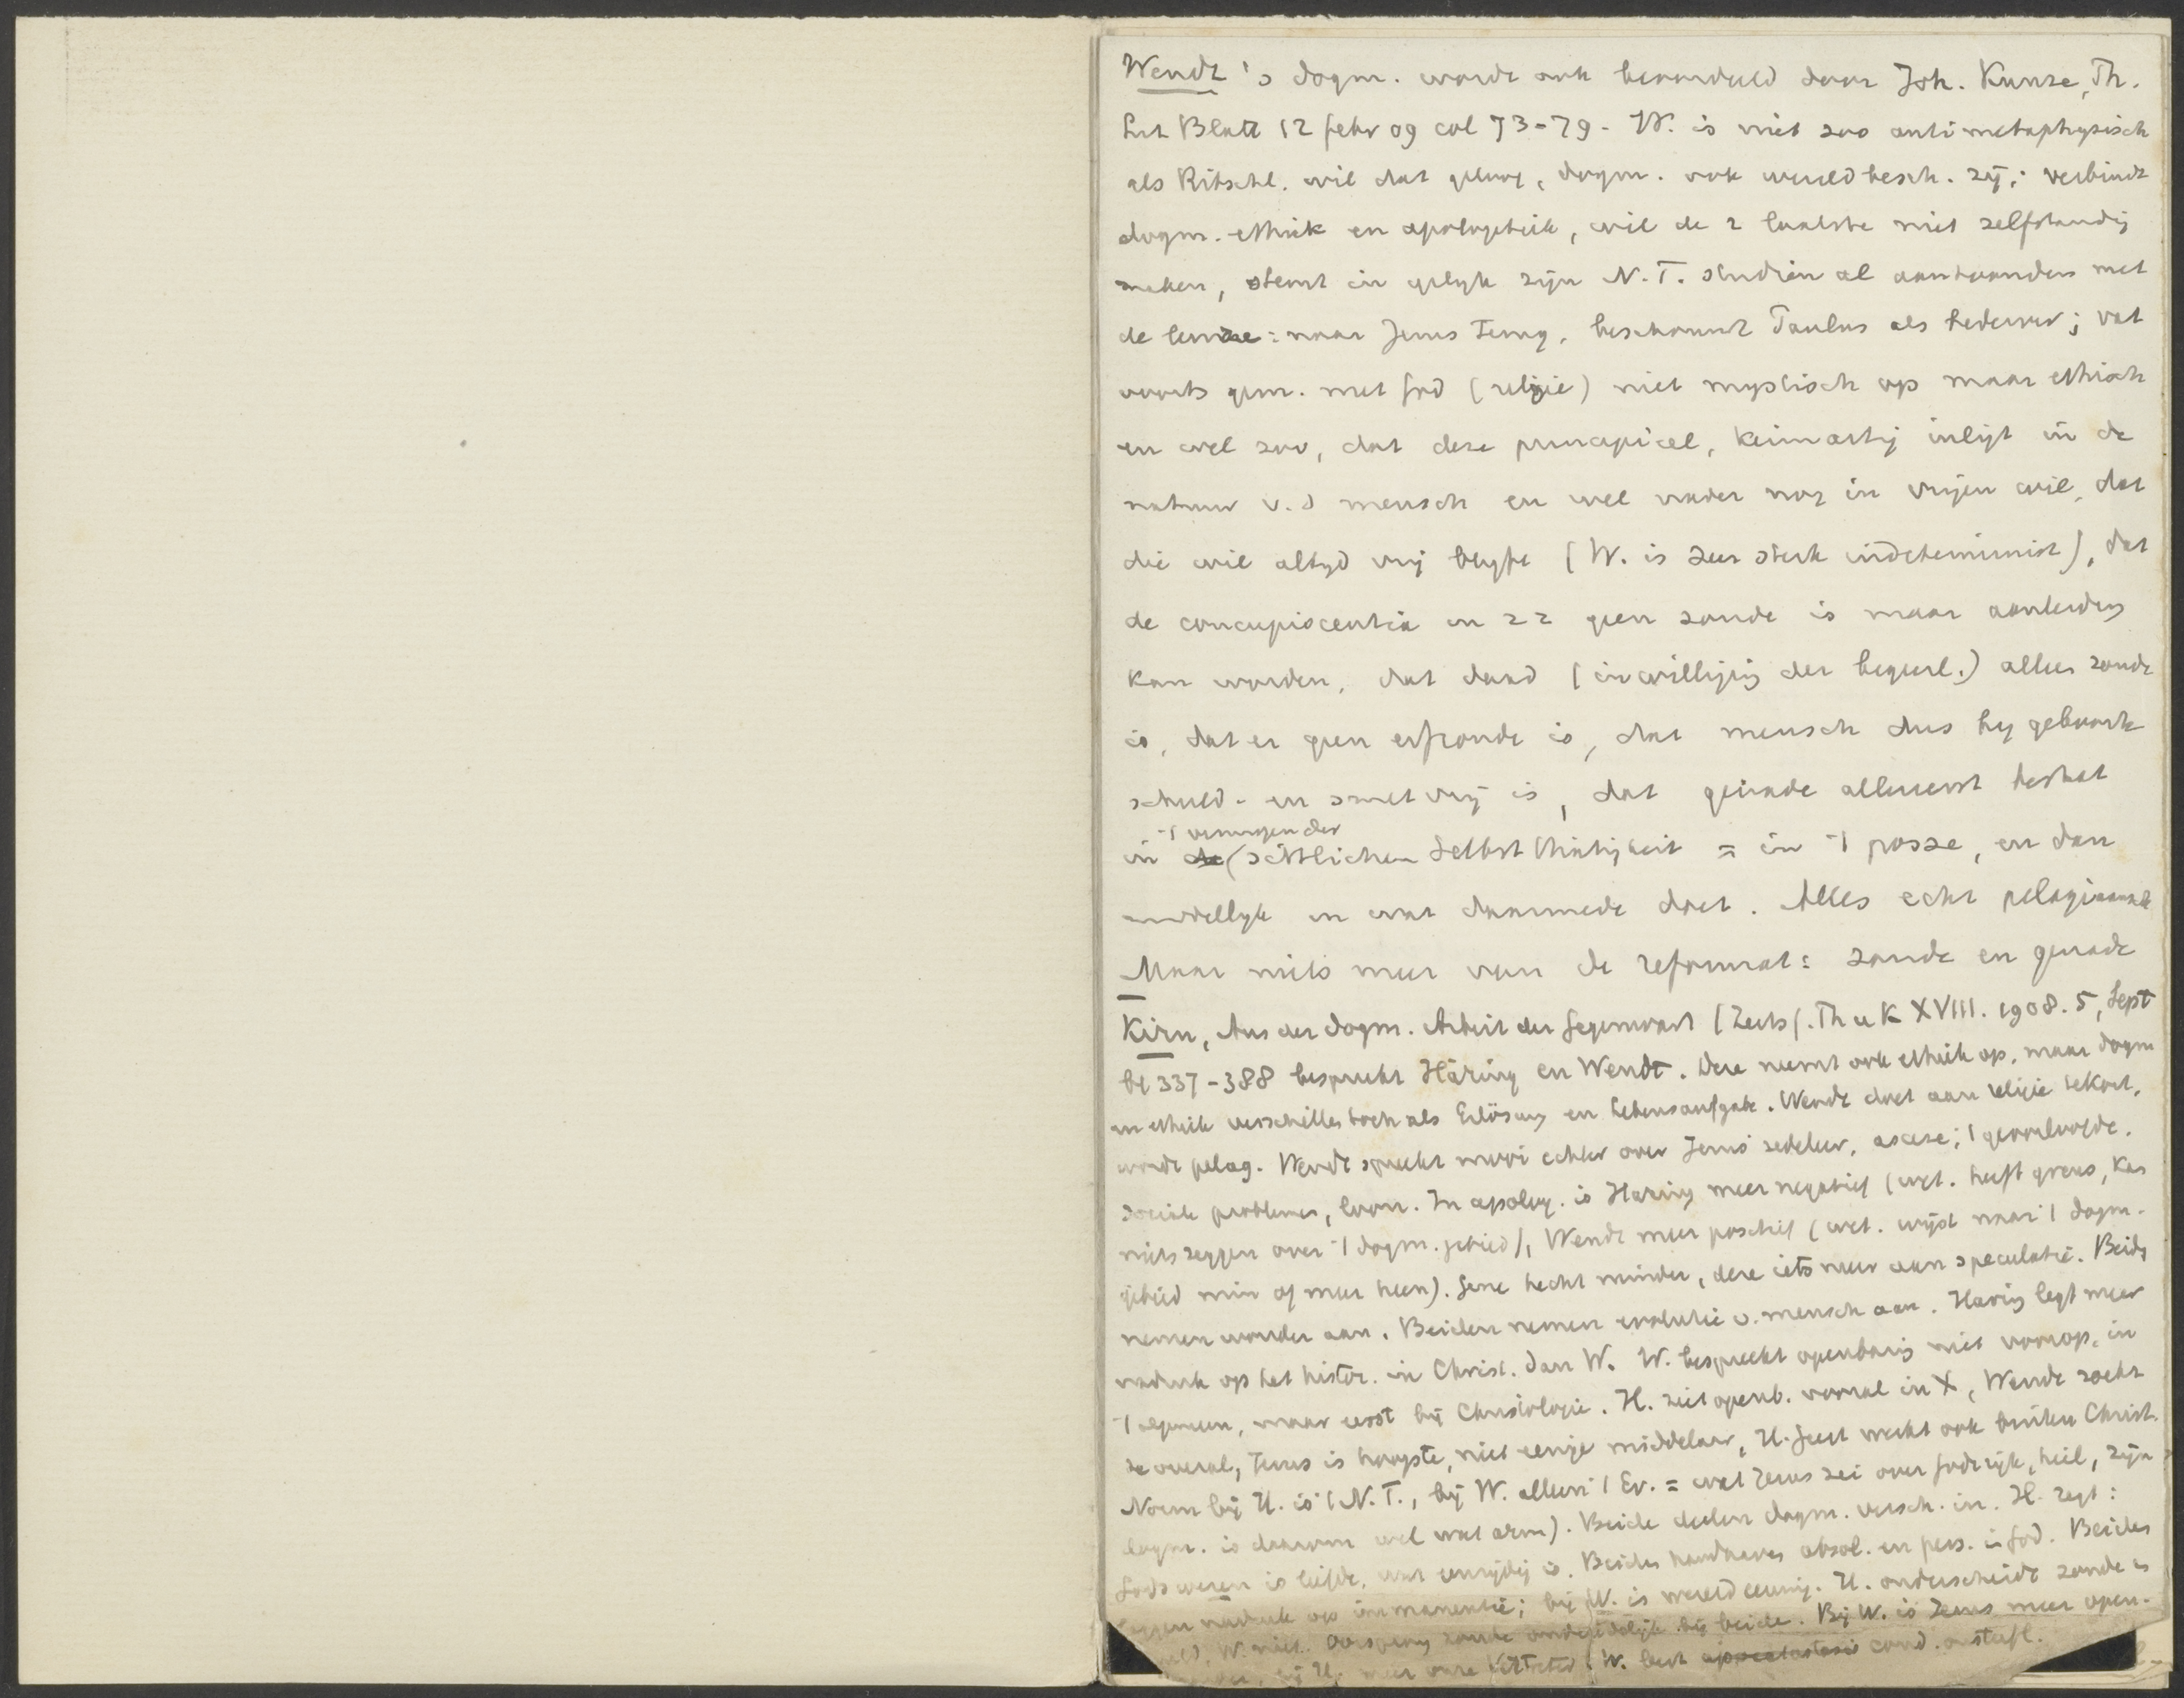 Wendt's dogm. wordt ook beoordeeld door Joh. Kunze, Th.
Lit Blatt 12 febr 09 col 73-79 - W. is niet zoo antimetaphysisch
als Ritschl. wil dat geloof, dogm. ook wereldbesch. zij; verbindt
dogm. ethiek en apologetiek, wil de 2 laatste niet zelfstandig
maken, stemt in gelijk zijn N.T. studiën al aantoonden met
de leuze: naar Jezus terug, beschouwt Paulus als bederver; vat
voorts gem. met God (religie) niet mystisch op maar ethisch
en wel zoo, dat deze principieel, keimartig inligt in de
natuur v.d mensch en wel nader nog in vrijen wil, dat
die wil altyd vrij blyft (W. is zeer sterk indeterminist), dat
de concupiscentia in zz geen zonde is maar aanleiding
kan worden, dat daad (inwilliging der begeerl.) alleen zonde
is, dat er geen erfzonde is, dat mensch dus by geboorte
schuld- en smetvrij is, dat genade allereerst bestaat
't vermogen der
in de sittlichen Selbstthätigkeit = in 't posse, en dan
middellyk in wat daarmede doet. Alles echt pelagiaansch
Maar niets meer van de reformat: zonde en genade
Kirn, Aus der dogm. Arbeit der Gegenwart (Zeits f. Th u K XVIII. 1908. 5, Sept
bl 337-388 bespreekt Häring en Wendt. Deze neemt ook ethiek op, maar dogm
en ethiek verschillen toch als Erlösung en Lebensaufgabe. Wendt doet aan religie tekort,
wordt pelag. Wendt spreekt mooi echter over Jezus' zedeleer, ascese,
sociale problemen, loon. In apolog. is Haring meer negatief (wet. heeft grens, kan
niets zeggen over 't dogm. gebied), Wendt meer positief (wet. wijst naar 't dogm.
gebied min of meer heen). Gene hecht minder, deze iets meer aan speculatie. Beide
nemen wonder aan. Beiden nemen evolutie v. mensch aan. Haring legt meer
nadruk op het histor. in Christ. dan W. W. bespreekt openbaring niet voorop, in
't algemeen, maar eerst bij Christologie. H. ziet openb. vooral in X, Wendt zoekt
ze overal, Jezus is hoogste, niet eenige middelaar, H. Geest werkt ook buiten Christ.
Norm bij H. is 't N.T., bij W. alleen 't Ev. = wat Jezus zei over Godsrijk, heil, zijn
dogm. is daarom wel wat arm). Beide deelen dogm. versch. in. H. zegt:
Gods wezen is liefde, wat eenzijdig is. Beiden handhaven absol. en pers. in God. Beiden
leggen nadruk op immanentie; bij W. is wereld eeuwig. H. onderscheidt zonde en
schuld, W. niet. Oorsprong zonde onduidelijk bij beide. Bij W. is Jezus meer open-
bij H. meer onze Vertreter. W. leert apocatastasis cond. onsterfl.